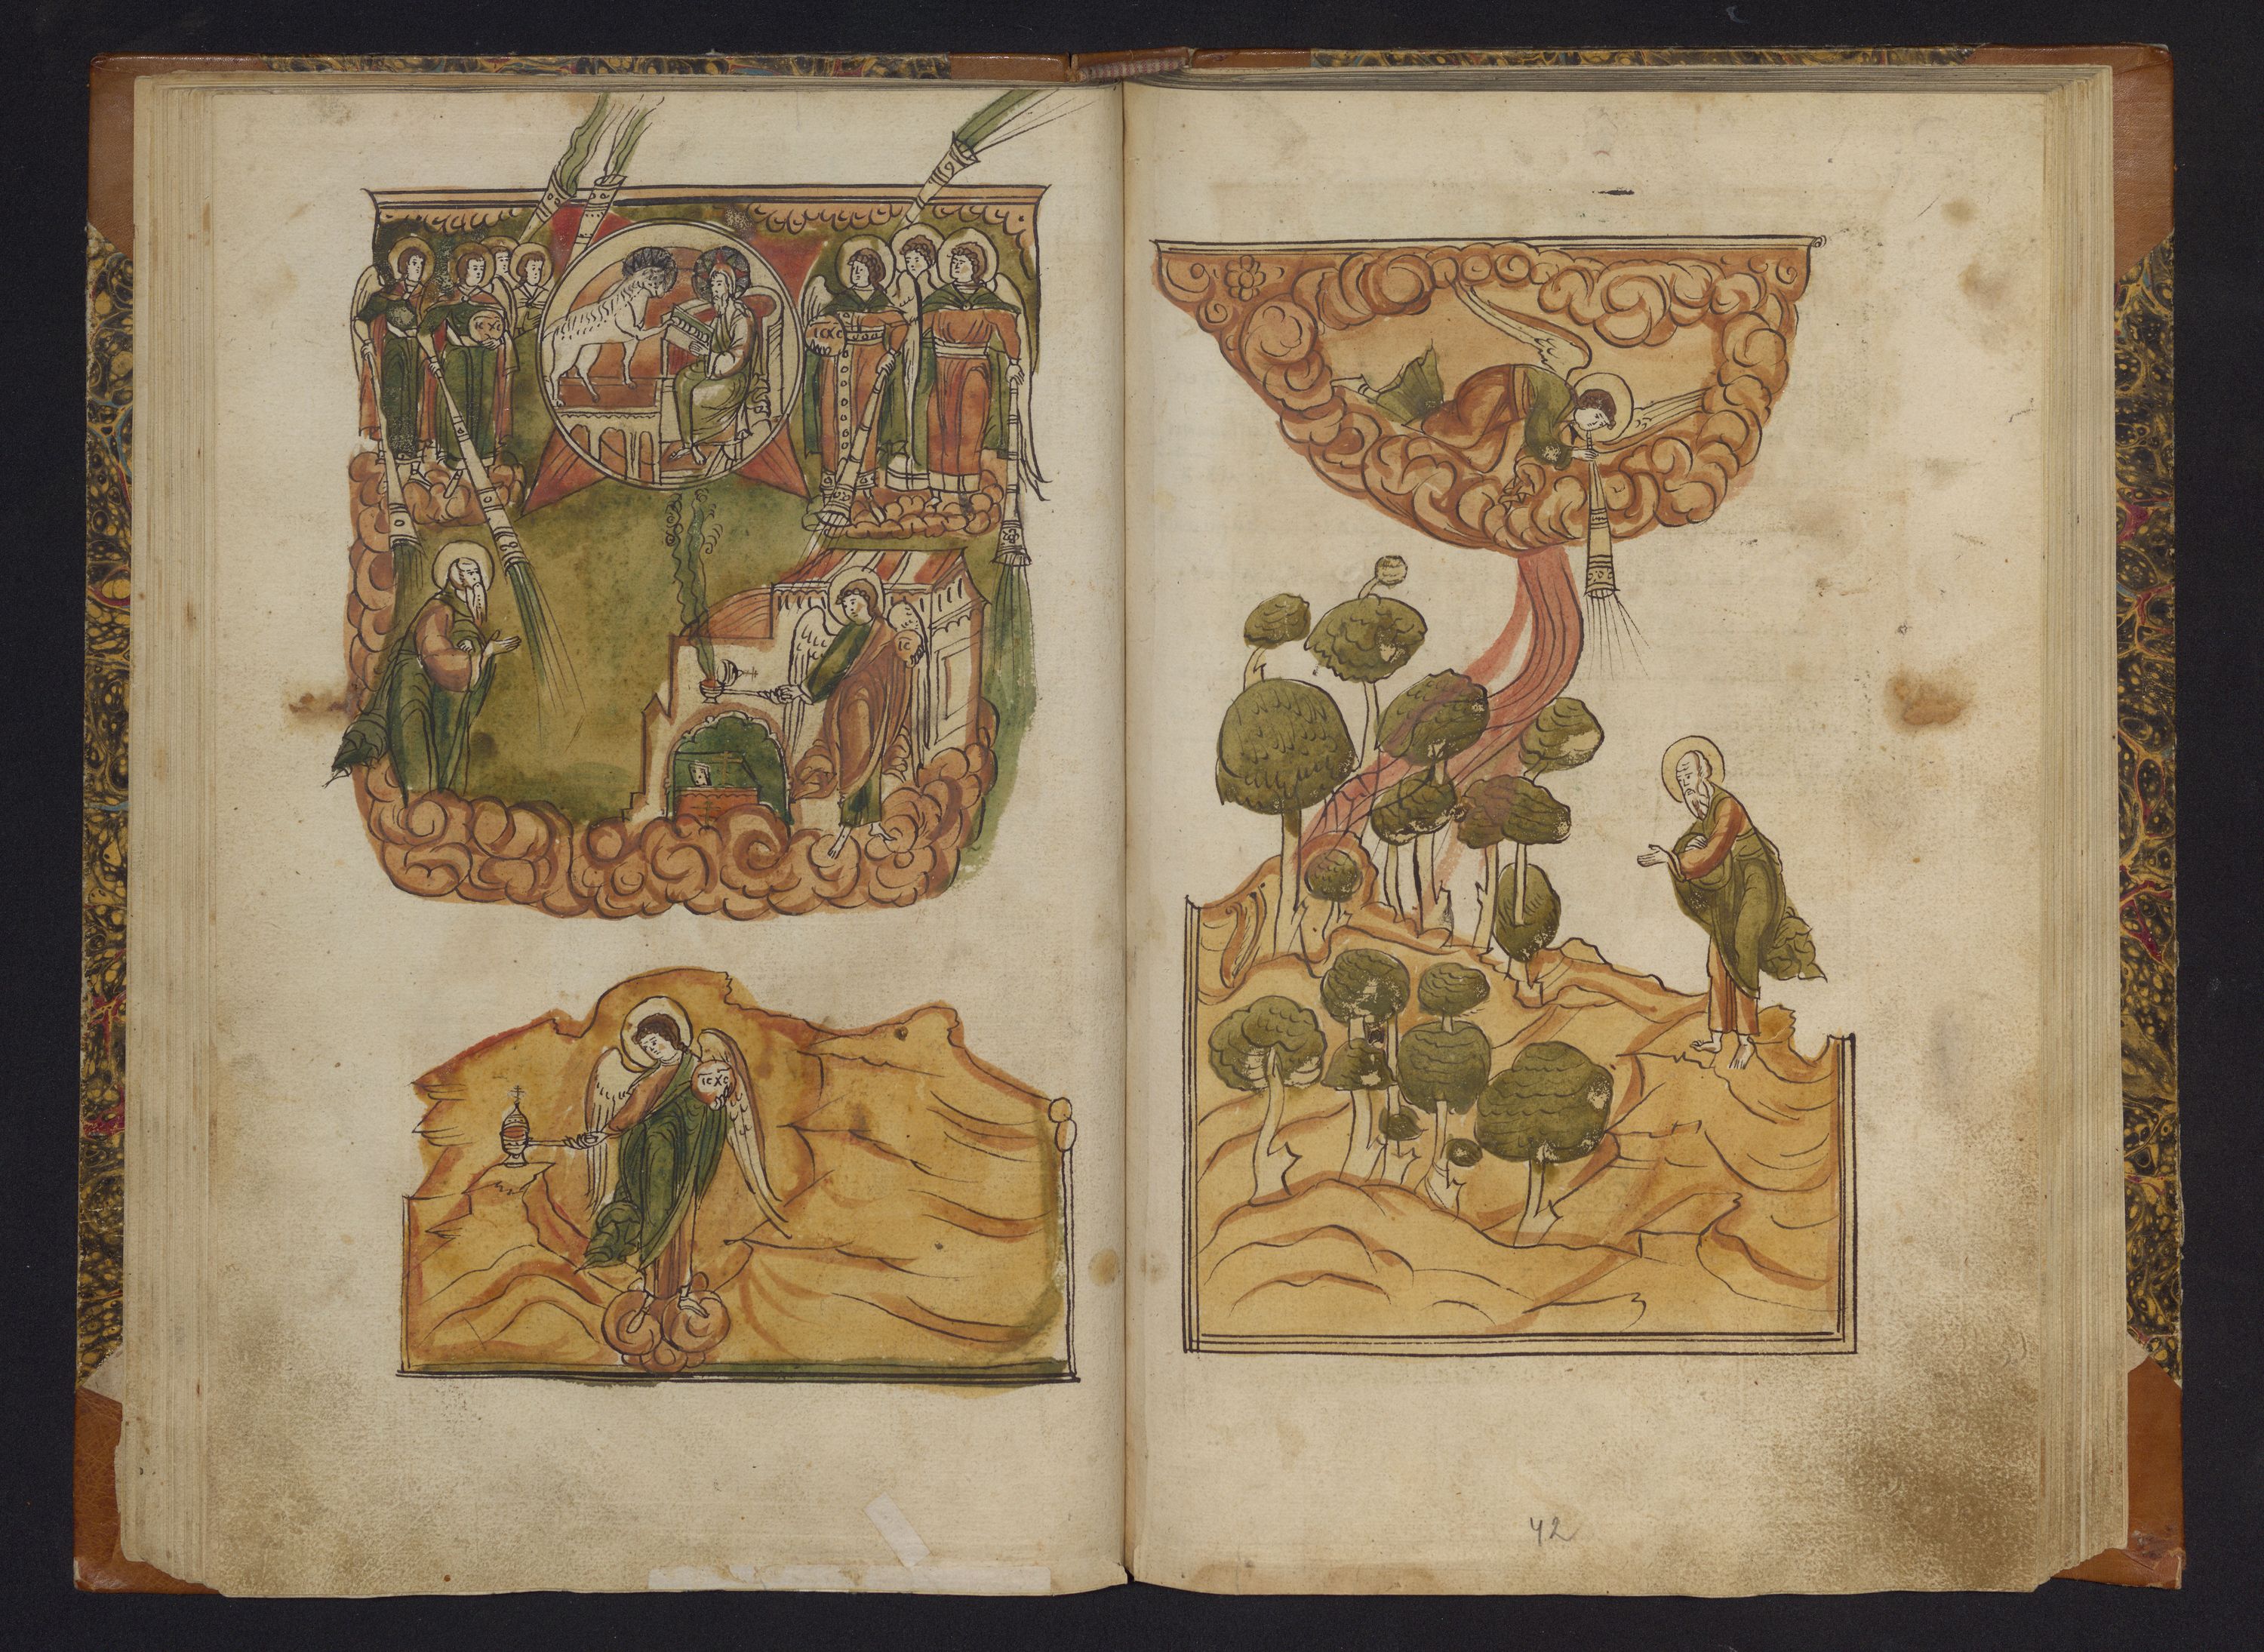 ІС ХС
ІС ХС
ІС
ІС ХС
42